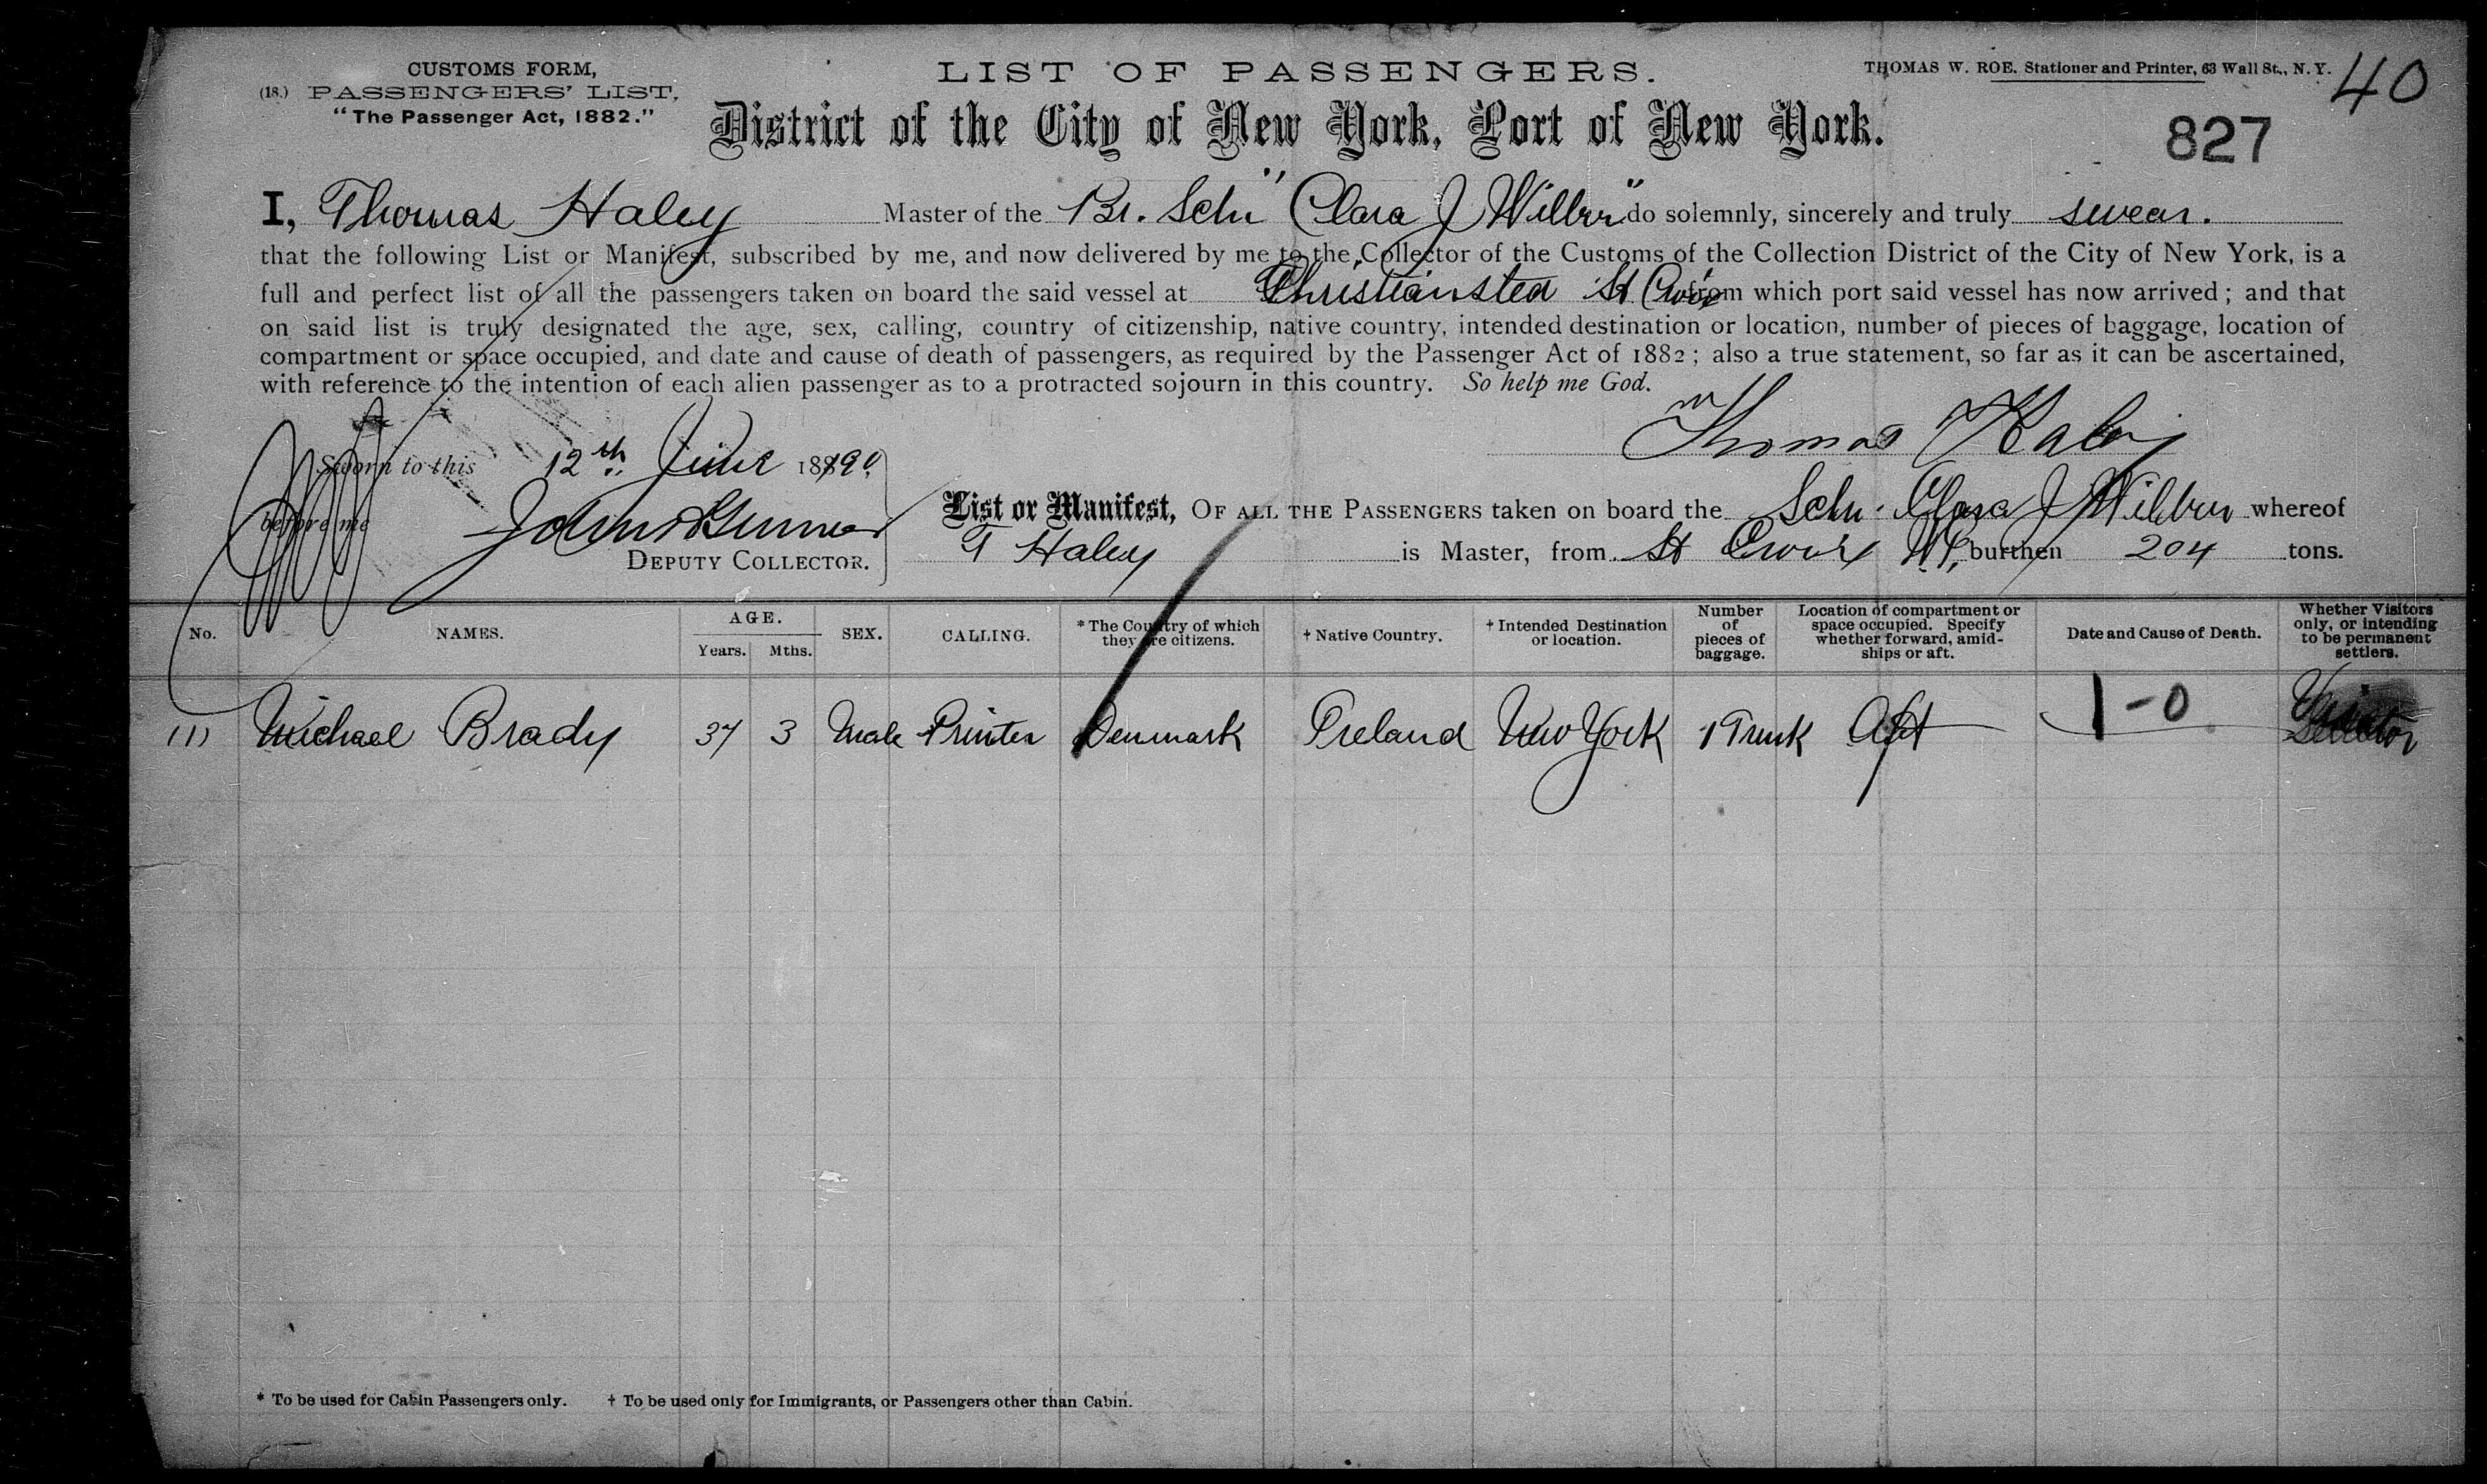 CUSTOMS FORM,
(18.) PASSENGERS' LIST,
"The Passenger Act, 1882."
LIST OF PASSENGERS.
THOMAS W. ROE. Stationer and Printer, 63 Wall St., N. Y.
40
District of the City of New York, Port of New York.
827
I, Thomas Haley Master of the Br. Schr "Clara J Wilbur" do solemnly, sincerely and truly swear.
that the following List or Manifest, subscribed by me, and now delivered by me to the Collector of the Customs of the Collection District of the City of New York, is a
full and perfect list of all the passengers taken on board the said vessel at Christiansted St Croix from which port said vessel has now arrived; and that
on said list is truly designated the age, sex, calling, country of citizenship, native country, intended destination or location, number of pieces of baggage, location of
compartment or space occupied, and date and cause of death of passengers, as required by the Passenger Act of 1882; also a true statement, so far as it can be ascertained,
with reference to the intention of each alien passenger as to a protracted sojourn in this country. So help me God.
Thomas Haley
Sworn to this 12th June 1890
before me
DEPUTY COLLECTOR.
List or Manifest, OF ALL THE PASSENGERS taken on board the Schr. Clara J Wilbur whereof
T Haley is Master, from St Croix W.I. burthen 204 tons.
No. NAMES. AGE. Years. Mths. SEX. CALLING. * The Country of which they are citizens. † Native Country. † Intended Destination or location. Number of pieces of baggage. Location of compartment or space occupied. Specify whether forward, amidships or aft. Date and Cause of Death. Whether Visitors only, or intending to be permanent settlers.
(1) Michael Brady 37 3 Male Printer Denmark Ireland New York 1 Trunk Aft 1-0
* To be used for Cabin Passengers only. † To be used only for Immigrants, or Passengers other than Cabin.